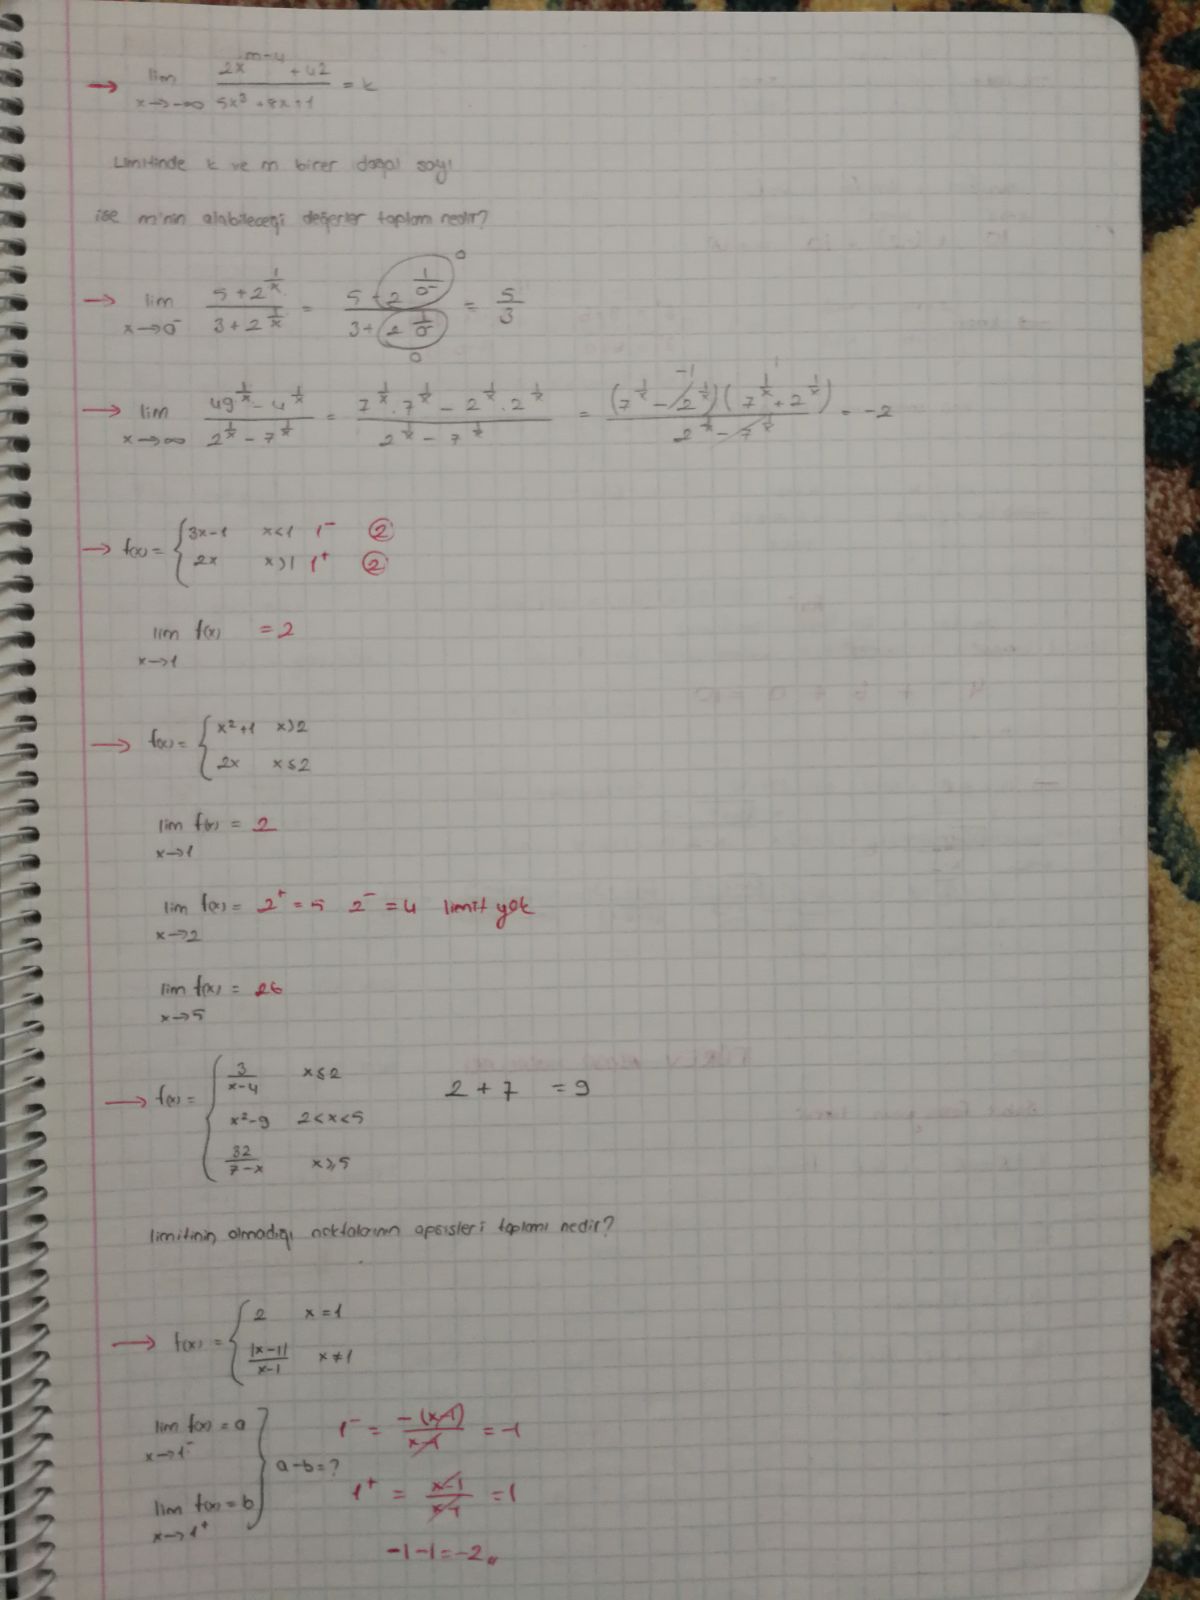 → lim x→-∞ (2x^(m-4) + 42)/(5x³ + 8x + 1) = k
Limitinde k ve m birer doğal sayı
ise m'nin alabileceği değerler toplamı nedir?
→ lim x→0⁻ (5 + 2^(1/x))/(3 + 2^(1/x)) = (5 + 2^(1/0⁻))/(3 + 2^(1/0⁻)) = 5/3
0
0
→ lim x→∞ (49^(1/x) - 4^(1/x))/(2^(1/x) - 7^(1/x)) = (7^(1/x) · 7^(1/x) - 2^(1/x) · 2^(1/x))/(2^(1/x) - 7^(1/x)) = (7^(1/x) - 2^(1/x))(7^(1/x) + 2^(1/x))/(2^(1/x) - 7^(1/x)) = -2
-1
→ f(x) = { 3x-1 x<1 1⁻ ②
2x x>1 1⁺ ②
lim x→1 f(x) = 2
→ f(x) = { x²+1 x>2
2x x≤2
lim x→1 f(x) = 2
lim x→2 f(x) = 2⁺ = 5 2⁻ = 4 limit yok
lim x→5 f(x) = 26
→ f(x) = { 3/(x-4) x≤2 2 + 7 = 9
x²-9 2<x<5
32/(7-x) x≥5
limitinin olmadığı noktalarının apsisleri toplamı nedir?
→ f(x) = { 2 x=1
|x-1|/(x-1) x≠1
lim x→1⁻ f(x) = a 1⁻ = -(x-1)/(x-1) = -1
a-b=?
lim x→1⁺ f(x) = b 1⁺ = (x-1)/(x-1) = 1
-1-1=-2